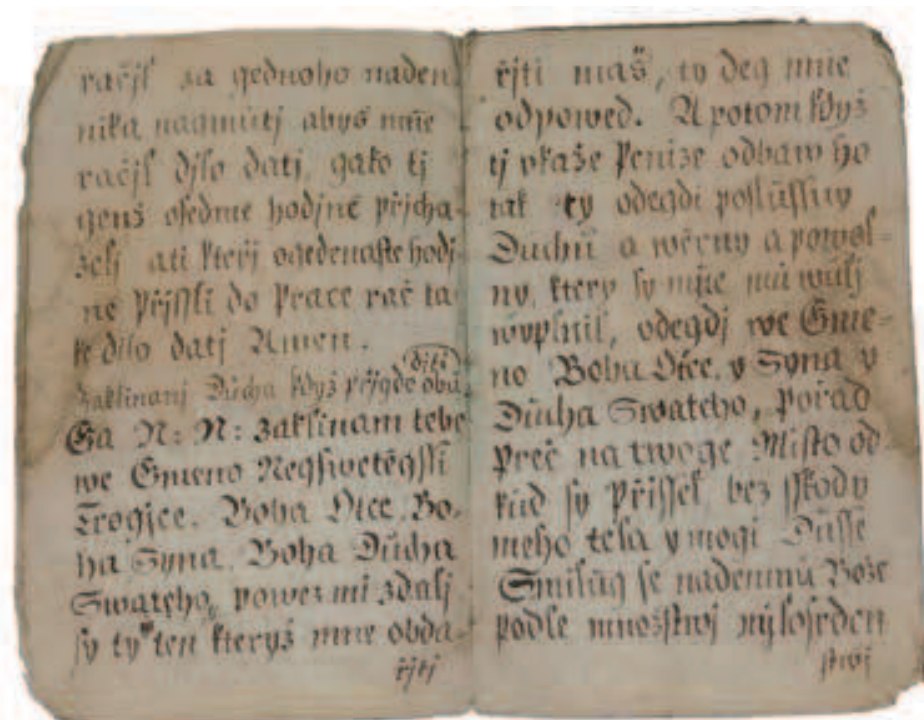 račjl za gednoho naden
nika nagmútj abys mňe
račjl djlo datj, gako tj
genž osedme hodjně přjcha-
zelj ati kteřj ogedenaste hodj
ně přjssli do Prace rač ta-
ke djlo datj Amen.
djtě
Zaklinanj Důcha když přigde obda
Ga N: N: zaklinam tebe
we Gmeno Neqswetěgssi
Trogice. Boha Otce, Bo-
ha Syna, Boha Důcha
Swateho, powez mi zdalj
sy ty ten kteryž mne obda-
řjtj
řjti maš, ty deg mne
odpowed. A potom když
tj vkaže Penize odbaw ho
tak ty odegdi poslůssny
Důchu a wěrny a powol-
ny, ktery sy mňe mů wůlj
wyplnil, odegdj we Gme-
no Boha Otce, y Syna y
Důcha Swateho, pořad
Preč na twoge Misto od-
kud sy Přissel, bez sskody
meho těla y mogi Důsse
Smilůg se nademnů Bože
podle množstwj mylosrden
stwj